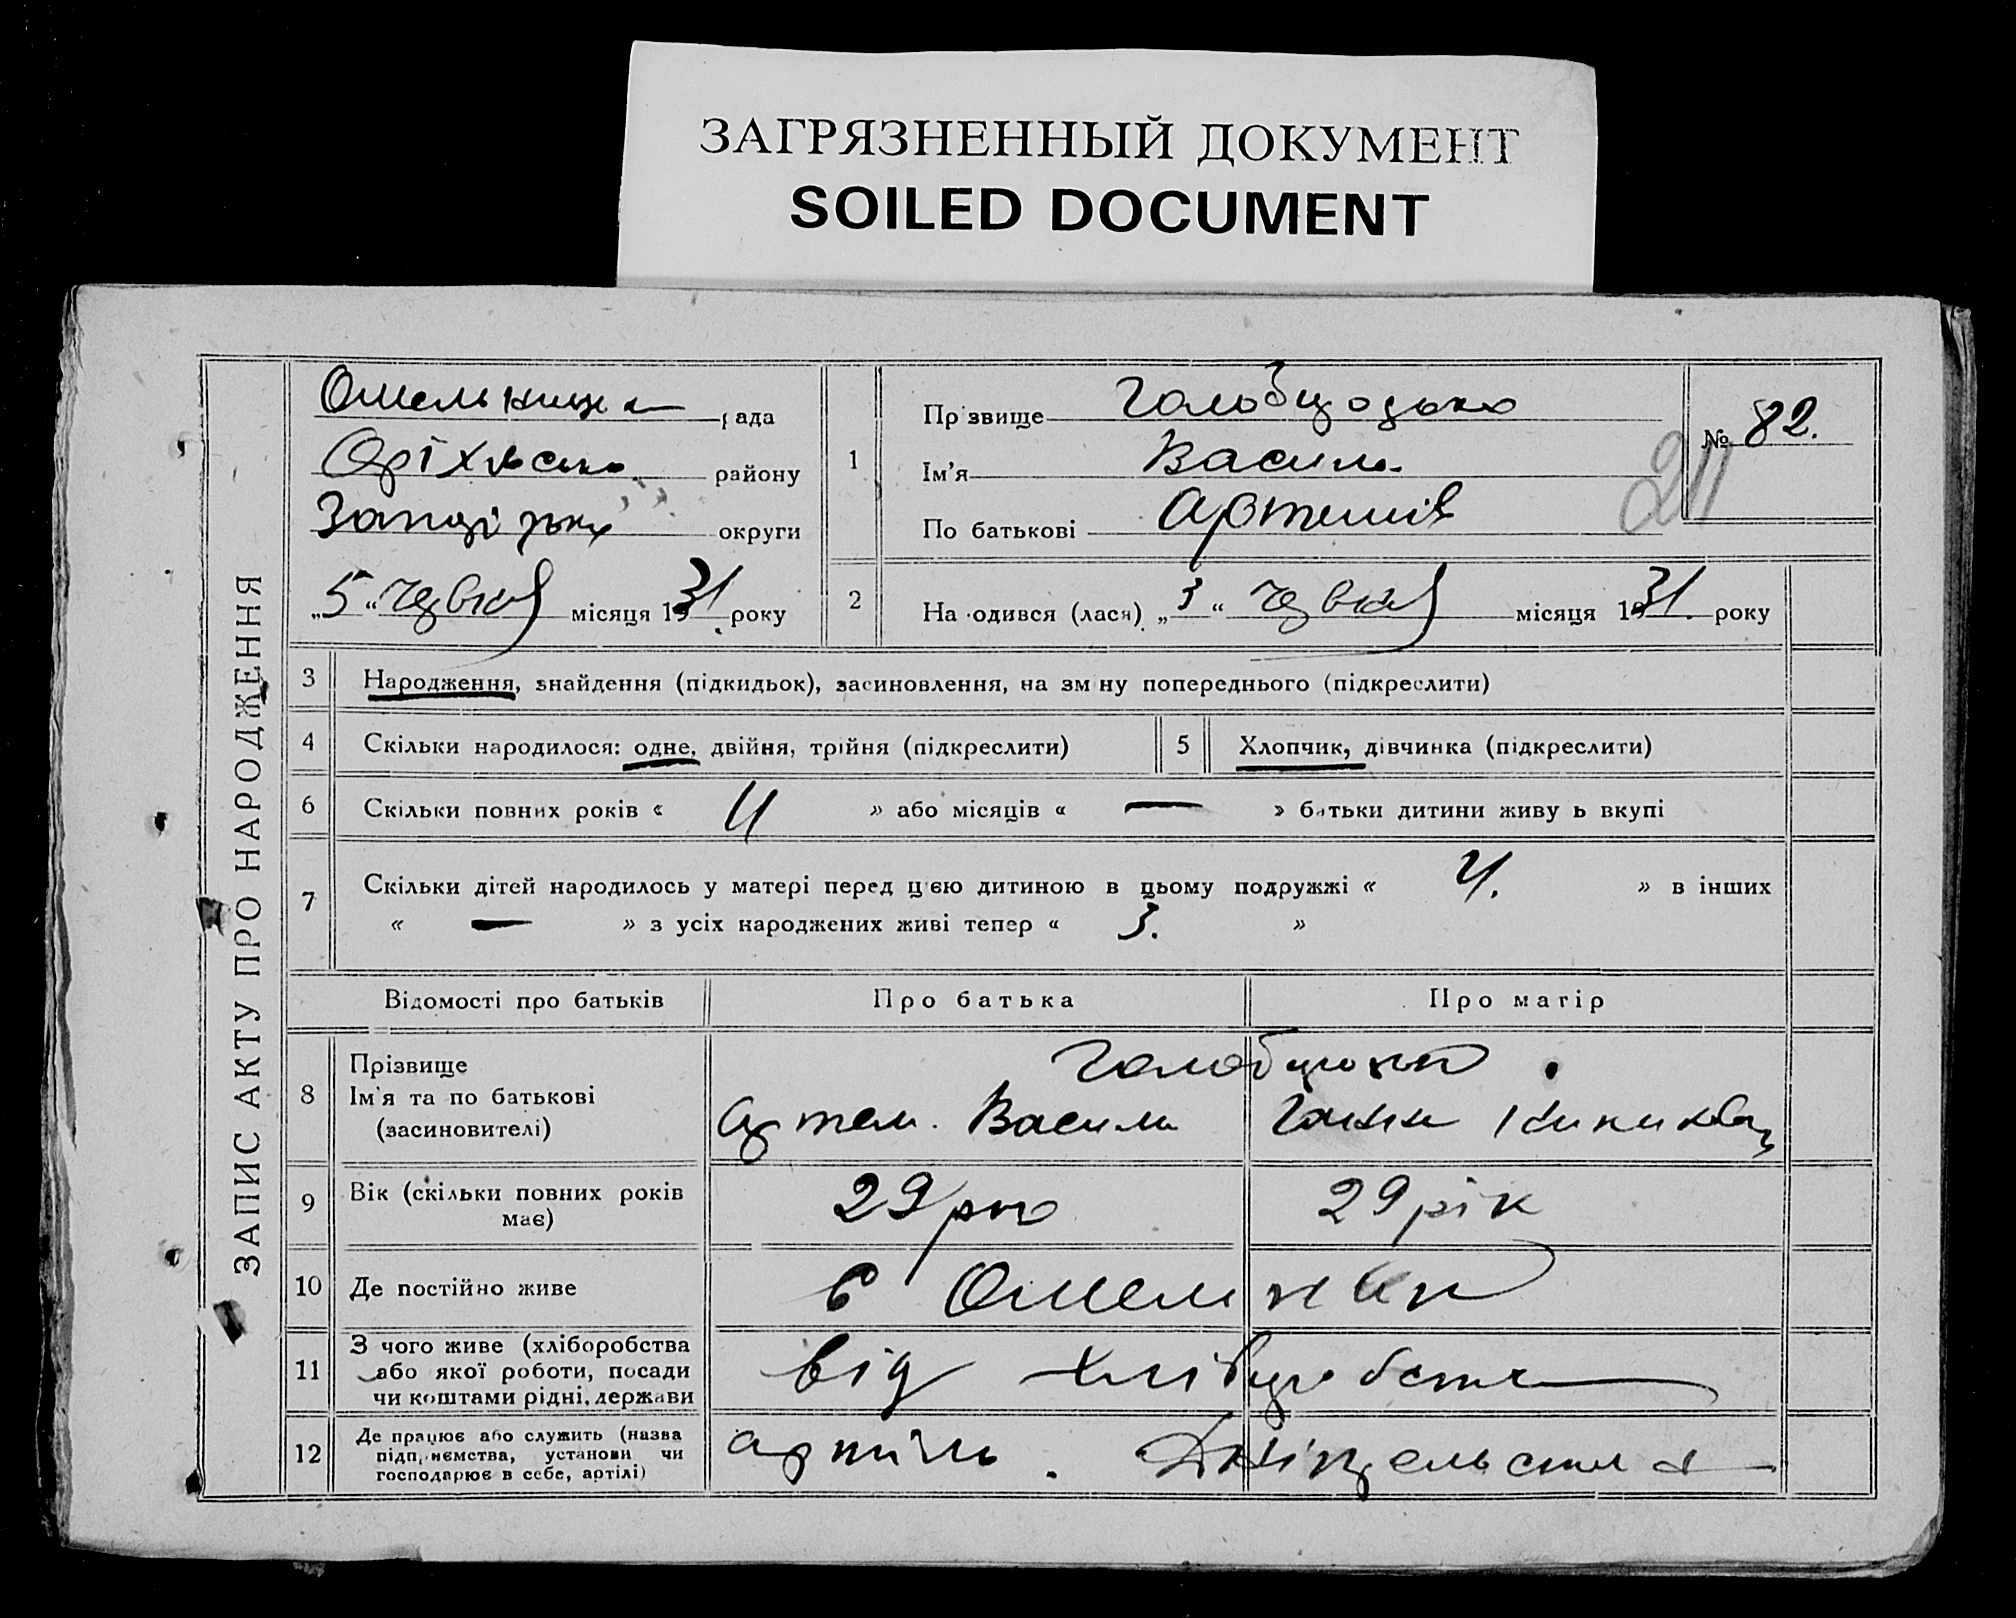 ЗАГРЯЗНЕННЫЙ ДОКУМЕНТ
SOILED DOCUMENT
ЗАПИС АКТУ ПРО НАРОДЖЕННЯ
рада
Оріхівсько району
округи
„5“ червня місяця 1931 року
1
Пр звище
Ім'я Василь
По батькові Артемів
№ 82.
211
2
На одився (лася) „3“ червня місяця 1931 року
3 Народження, знайдення (підкидьок), засиновлення, на зм ну попереднього (підкреслити)
4 Скільки народилося: одне, двійня, трійня (підкреслити)
5 Хлопчик, дівчинка (підкреслити)
6 Скільки повних років « » або місяців « — » батьки дитини живу ь вкупі
7 Скільки дітей народилось у матері перед цією дитиною в цьому подружжі « 4. » в інших
« — » з усіх народжених живі тепер « 3. »
Відомості про батьків Про батька Про матір
8 Прізвище
Ім'я та по батькові
(засиновителі)
Артем. Василь Ганна
9 Вік (скільки повних років
має)
29 рік 29 рік
10 Де постійно живе
с Омельник
11 З чого живе (хліборобства
або якої роботи, посади
чи коштами рідні, держави
від хліборобства
12 Де працює або служить (назва
підпр иємства, установи чи
господарює в себе, артілі)
артіль.